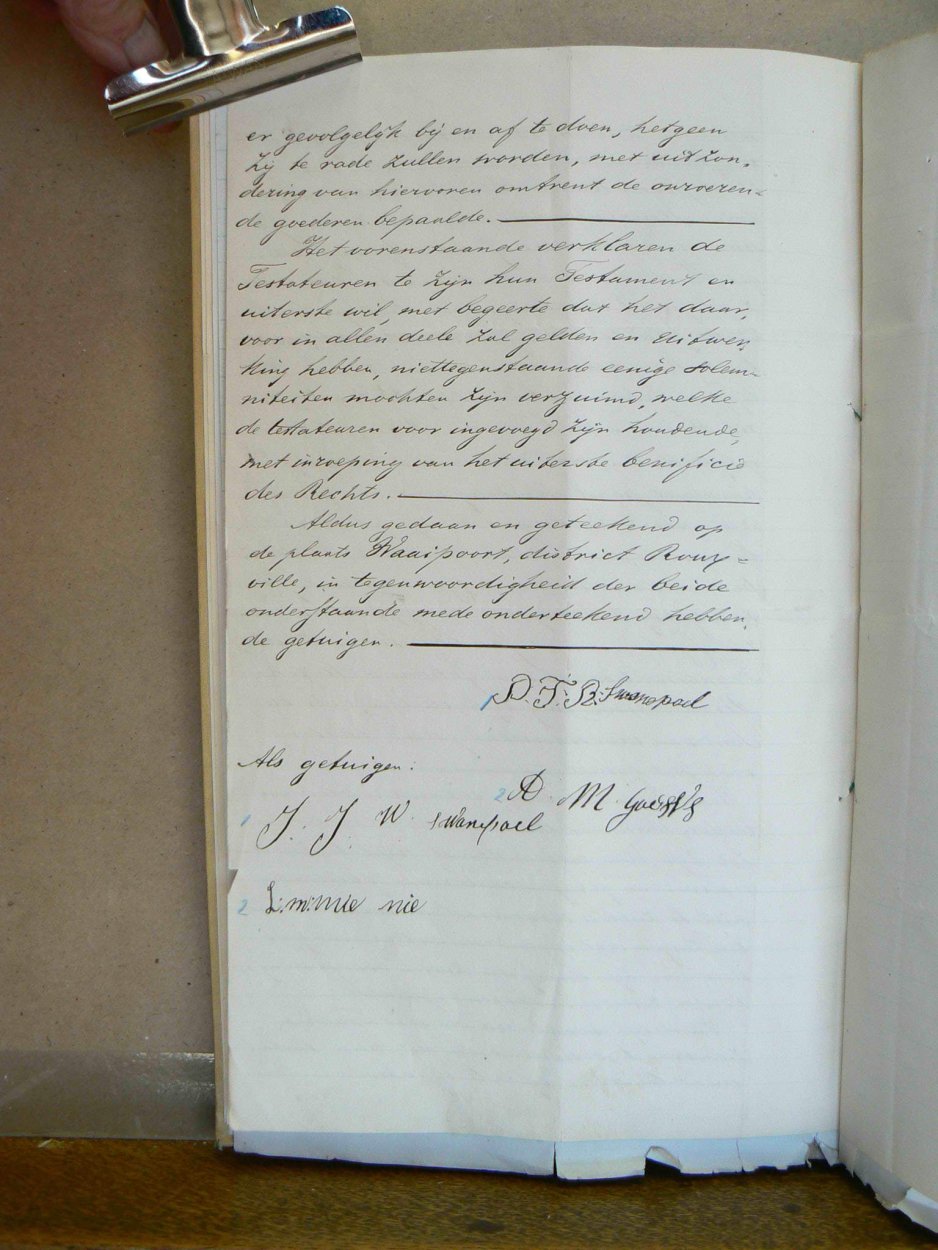 er gevolgelijk bij en af te doen, hetgeen
zij te rade zullen worden, met uitzon,
dering van hiervoren omtrent de onroeren=
de goederen bepaalde.
Het vorenstaande verklaren de
Testateuren te zijn hun Testament en
uiterste wil, met begeerte dat het daar,
voor in allen deele zal gelden en uitwer,
king hebben, niettegenstaande eenige solem=
niteiten mochten zijn verzuimd, welke
de testateuren voor ingevoegd zijn houdende,
met inroeping van het uiterste benificie
des Rechts.
Aldus gedaan en geteekend op
de plaats Waaipoort, district Roux=
ville, in tegenwoordigheid der beide
onderstaande mede onderteekend hebben,
de getuigen.
1 D. F. R. Swanepoel
Als getuigen:
2 A. M.
1 J. J W. Swanepoel
2 L.